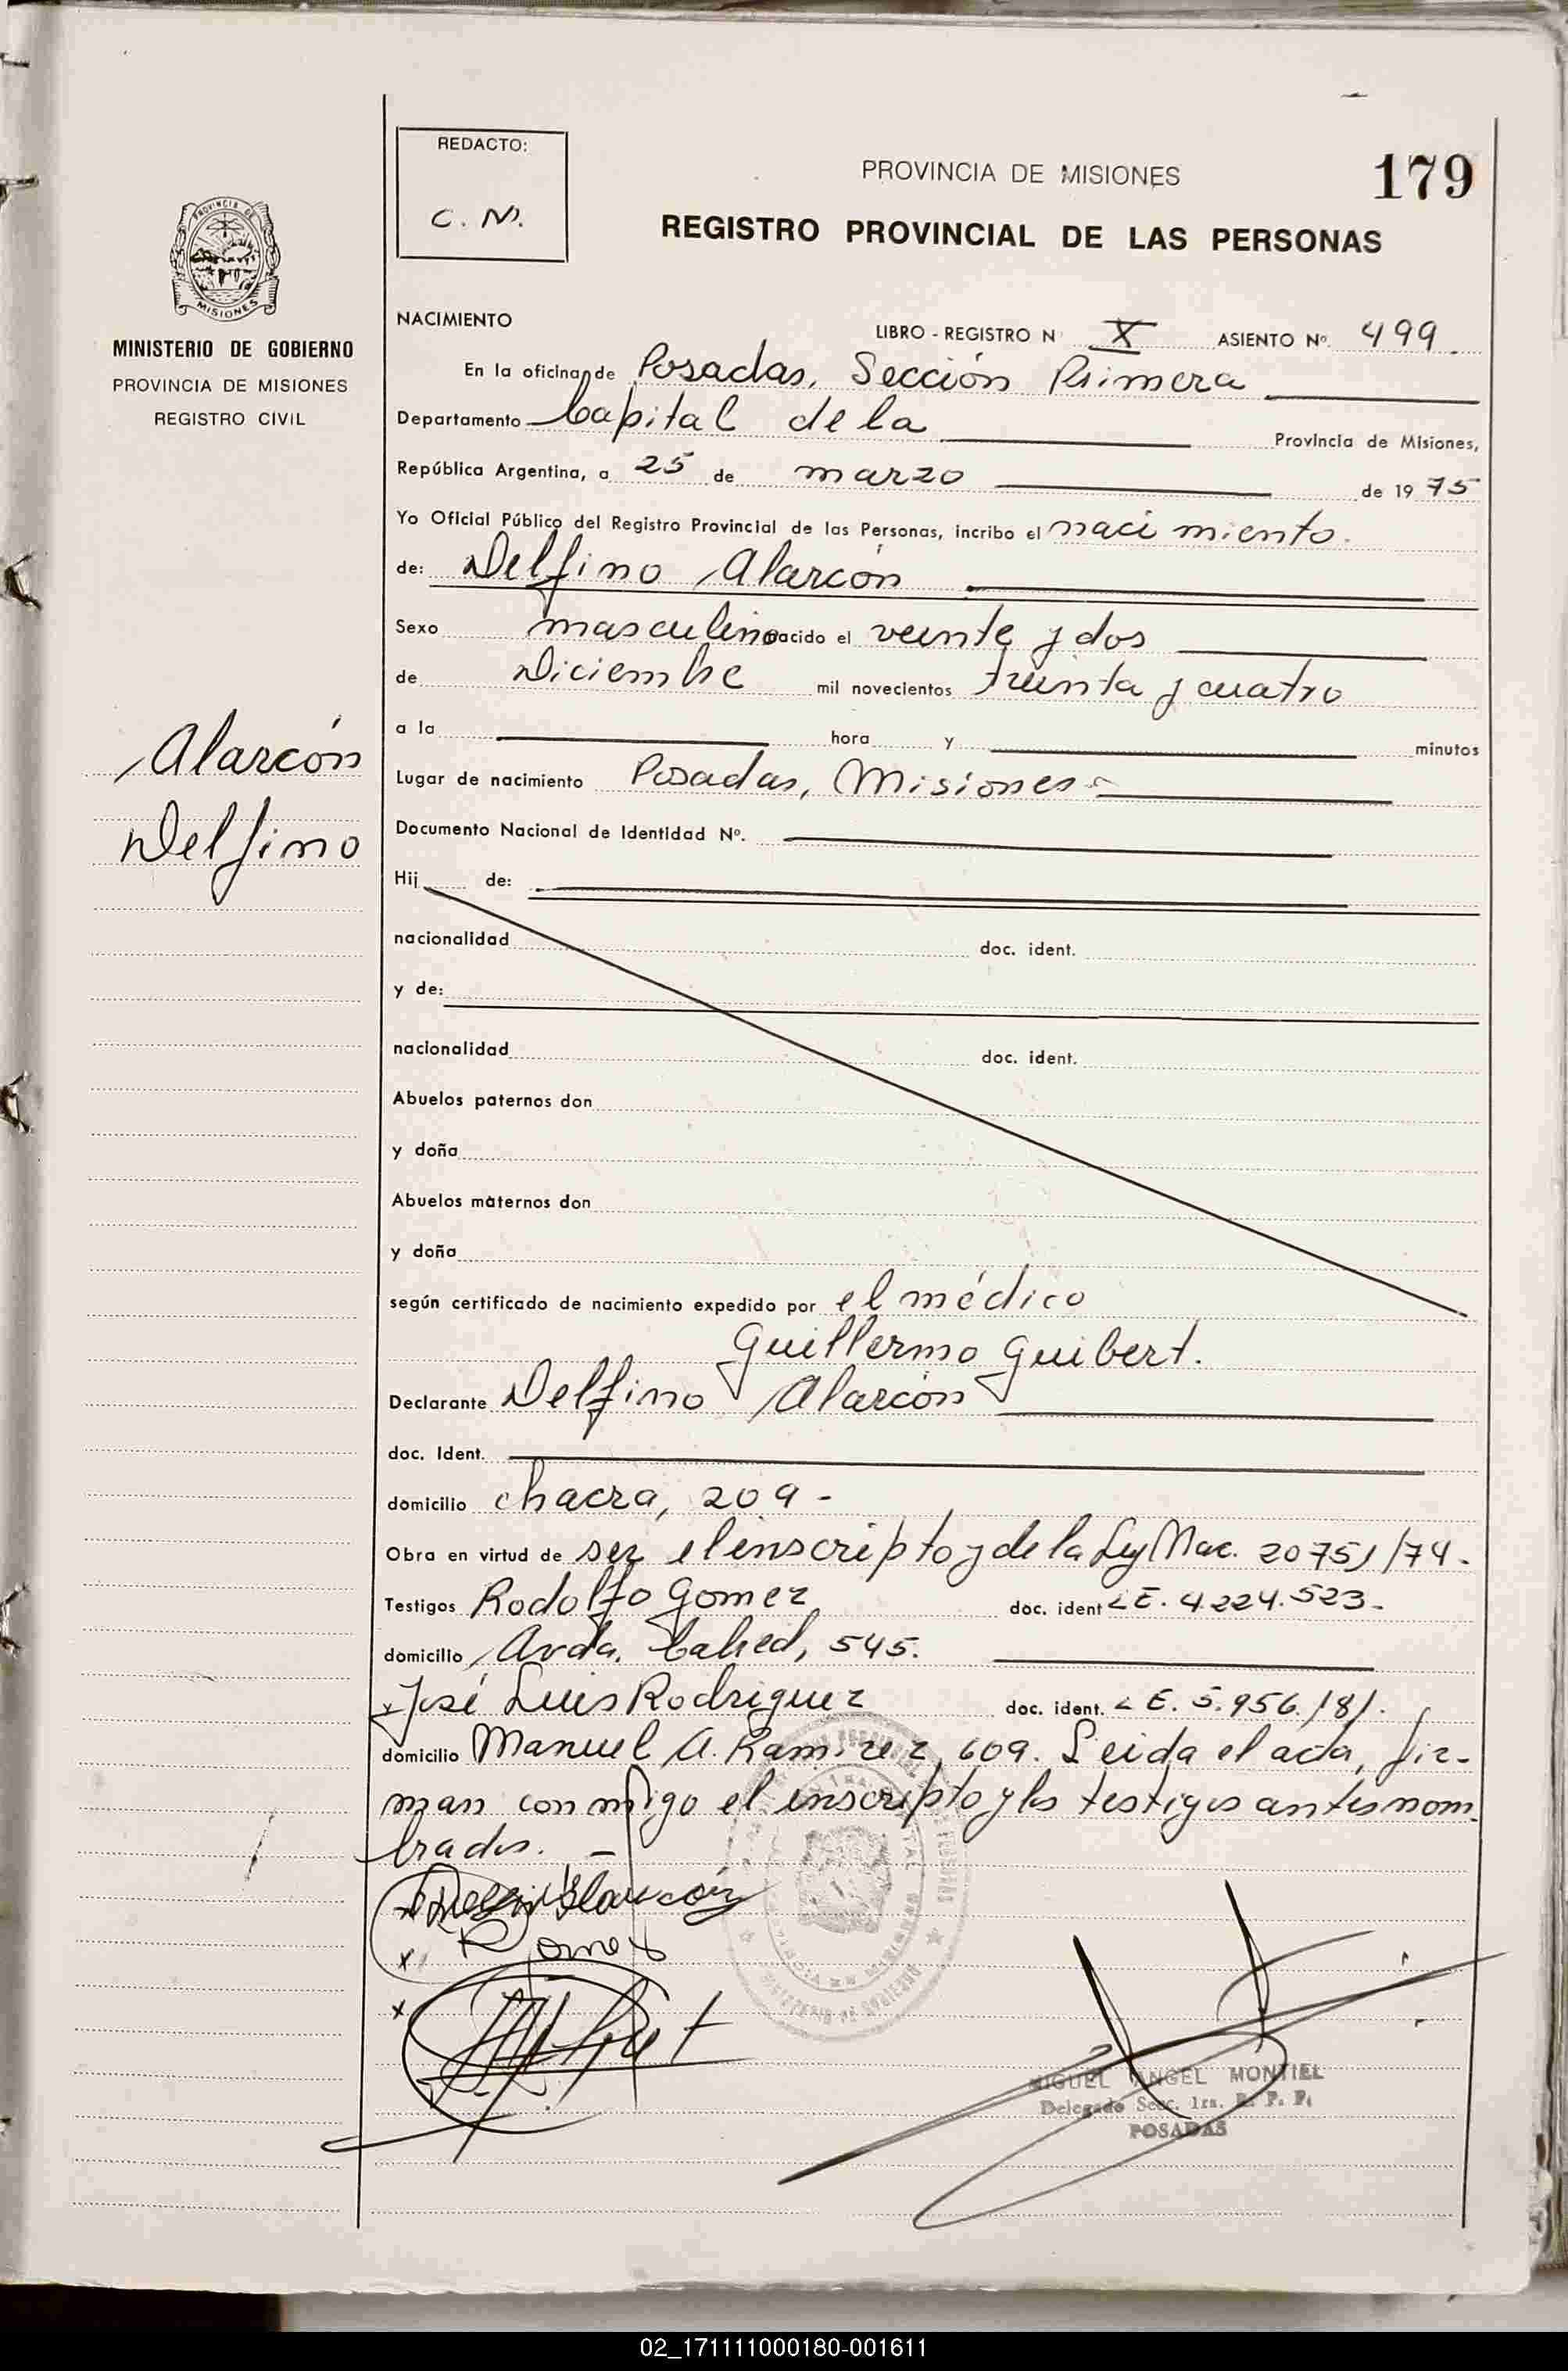 REDACTO:
C. N.
PROVINCIA DE MISIONES
179
REGISTRO PROVINCIAL DE LAS PERSONAS
PROVINCIA DE
MISIONES
MINISTERIO DE GOBIERNO
PROVINCIA DE MISIONES
REGISTRO CIVIL
NACIMIENTO
LIBRO - REGISTRO N X ASIENTO Nº 499
En la oficina de Posadas, Sección Primera
Departamento Capital de la Provincia de Misiones,
República Argentina, a 25 de marzo de 1975
Yo Oficial Público del Registro Provincial de las Personas, incribo el nacimiento.
de: Delfino Alarcón
Sexo masculino nacido el veinte y dos
de Diciembre mil novecientos treinta y cuatro
a la hora y minutos
Alarcón
Delfino
Lugar de nacimiento Posadas, Misiones
Documento Nacional de Identidad Nº.
Hij de:
nacionalidad doc. ident.
y de:
nacionalidad doc. ident.
Abuelos paternos don
y doña
Abuelos maternos don
y doña
según certificado de nacimiento expedido por el médico
Guillermo Guibert.
Declarante Delfino Alarcón
doc. Ident.
domicilio chacra, 209-
Obra en virtud de ser el inscripto y de la Ley Nac. 20751/74-
Testigos Rodolfo Gomez doc. ident LE. 4.224.523-
domicilio Avda. Cabred, 545.
José Luis Rodriguez doc. ident. LE. 5.956.181.
domicilio Manuel A. Ramirez, 609. Leida el acta, fir-
man conmigo el inscripto y los testigos antes nom
brados. -
Alarcón
MIGUEL ANGEL MONTIEL
Delegado Secc. 1ra. R. P. P.
POSADAS
02_171111000180-001611